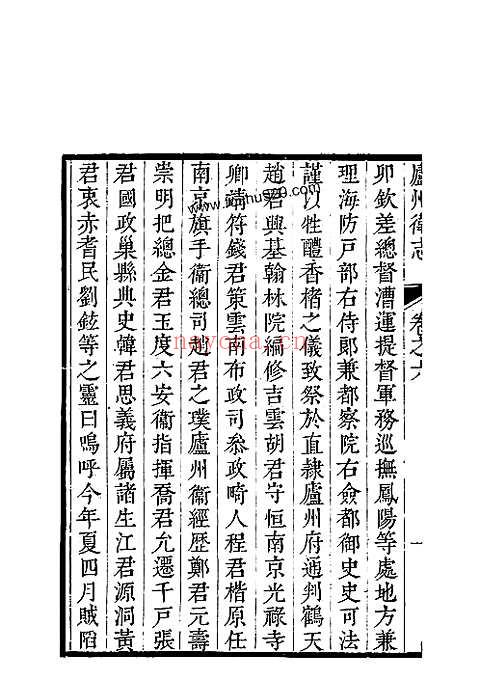 廬州衛志
卷之六
一
卯欽差總督漕運提督軍務巡撫鳳陽等處地方兼
理海防戸部右侍郎兼都察院右僉都御史史可法
謹以牲醴香楮之儀致祭於直隸廬州府通判鶴天
趙君興基翰林院編修吉雲胡君守恒南京光祿寺
卿靖符錢君策雲南布政司叅政畸人程君楷原任
南京旗手衛總司趙君之璞廬州衛經歷鄭君元壽
崇明把總金君玉度六安衛指揮喬君允遷千戸張
君國政巢縣典史韓君思義府屬諸生江君源洞黃
君衷赤耆民劉鉉等之靈曰嗚呼今年夏四月賊䧟
nayona.cn